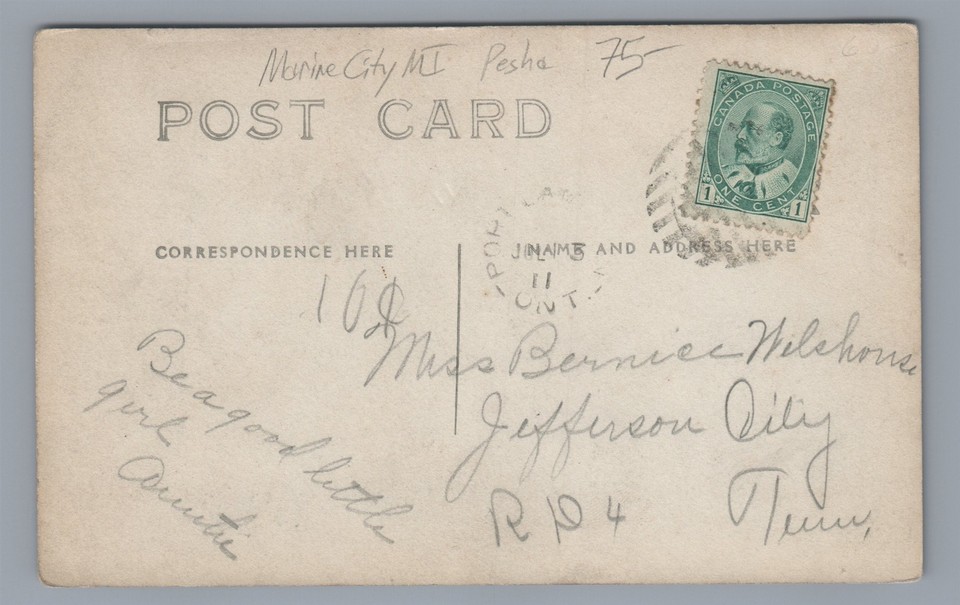 Marine City MI Pesha 75-
POST CARD
CANADA POSTAGE
ONE CENT
1 1
CORRESPONDENCE HERE
NAME AND ADDRESS HERE
PORT LAMB
JUL 15
11
ONT.
Miss Bernice Wilshouse
Jefferson City
R D 4 Tenn,
Be a good little
girl
Auntie